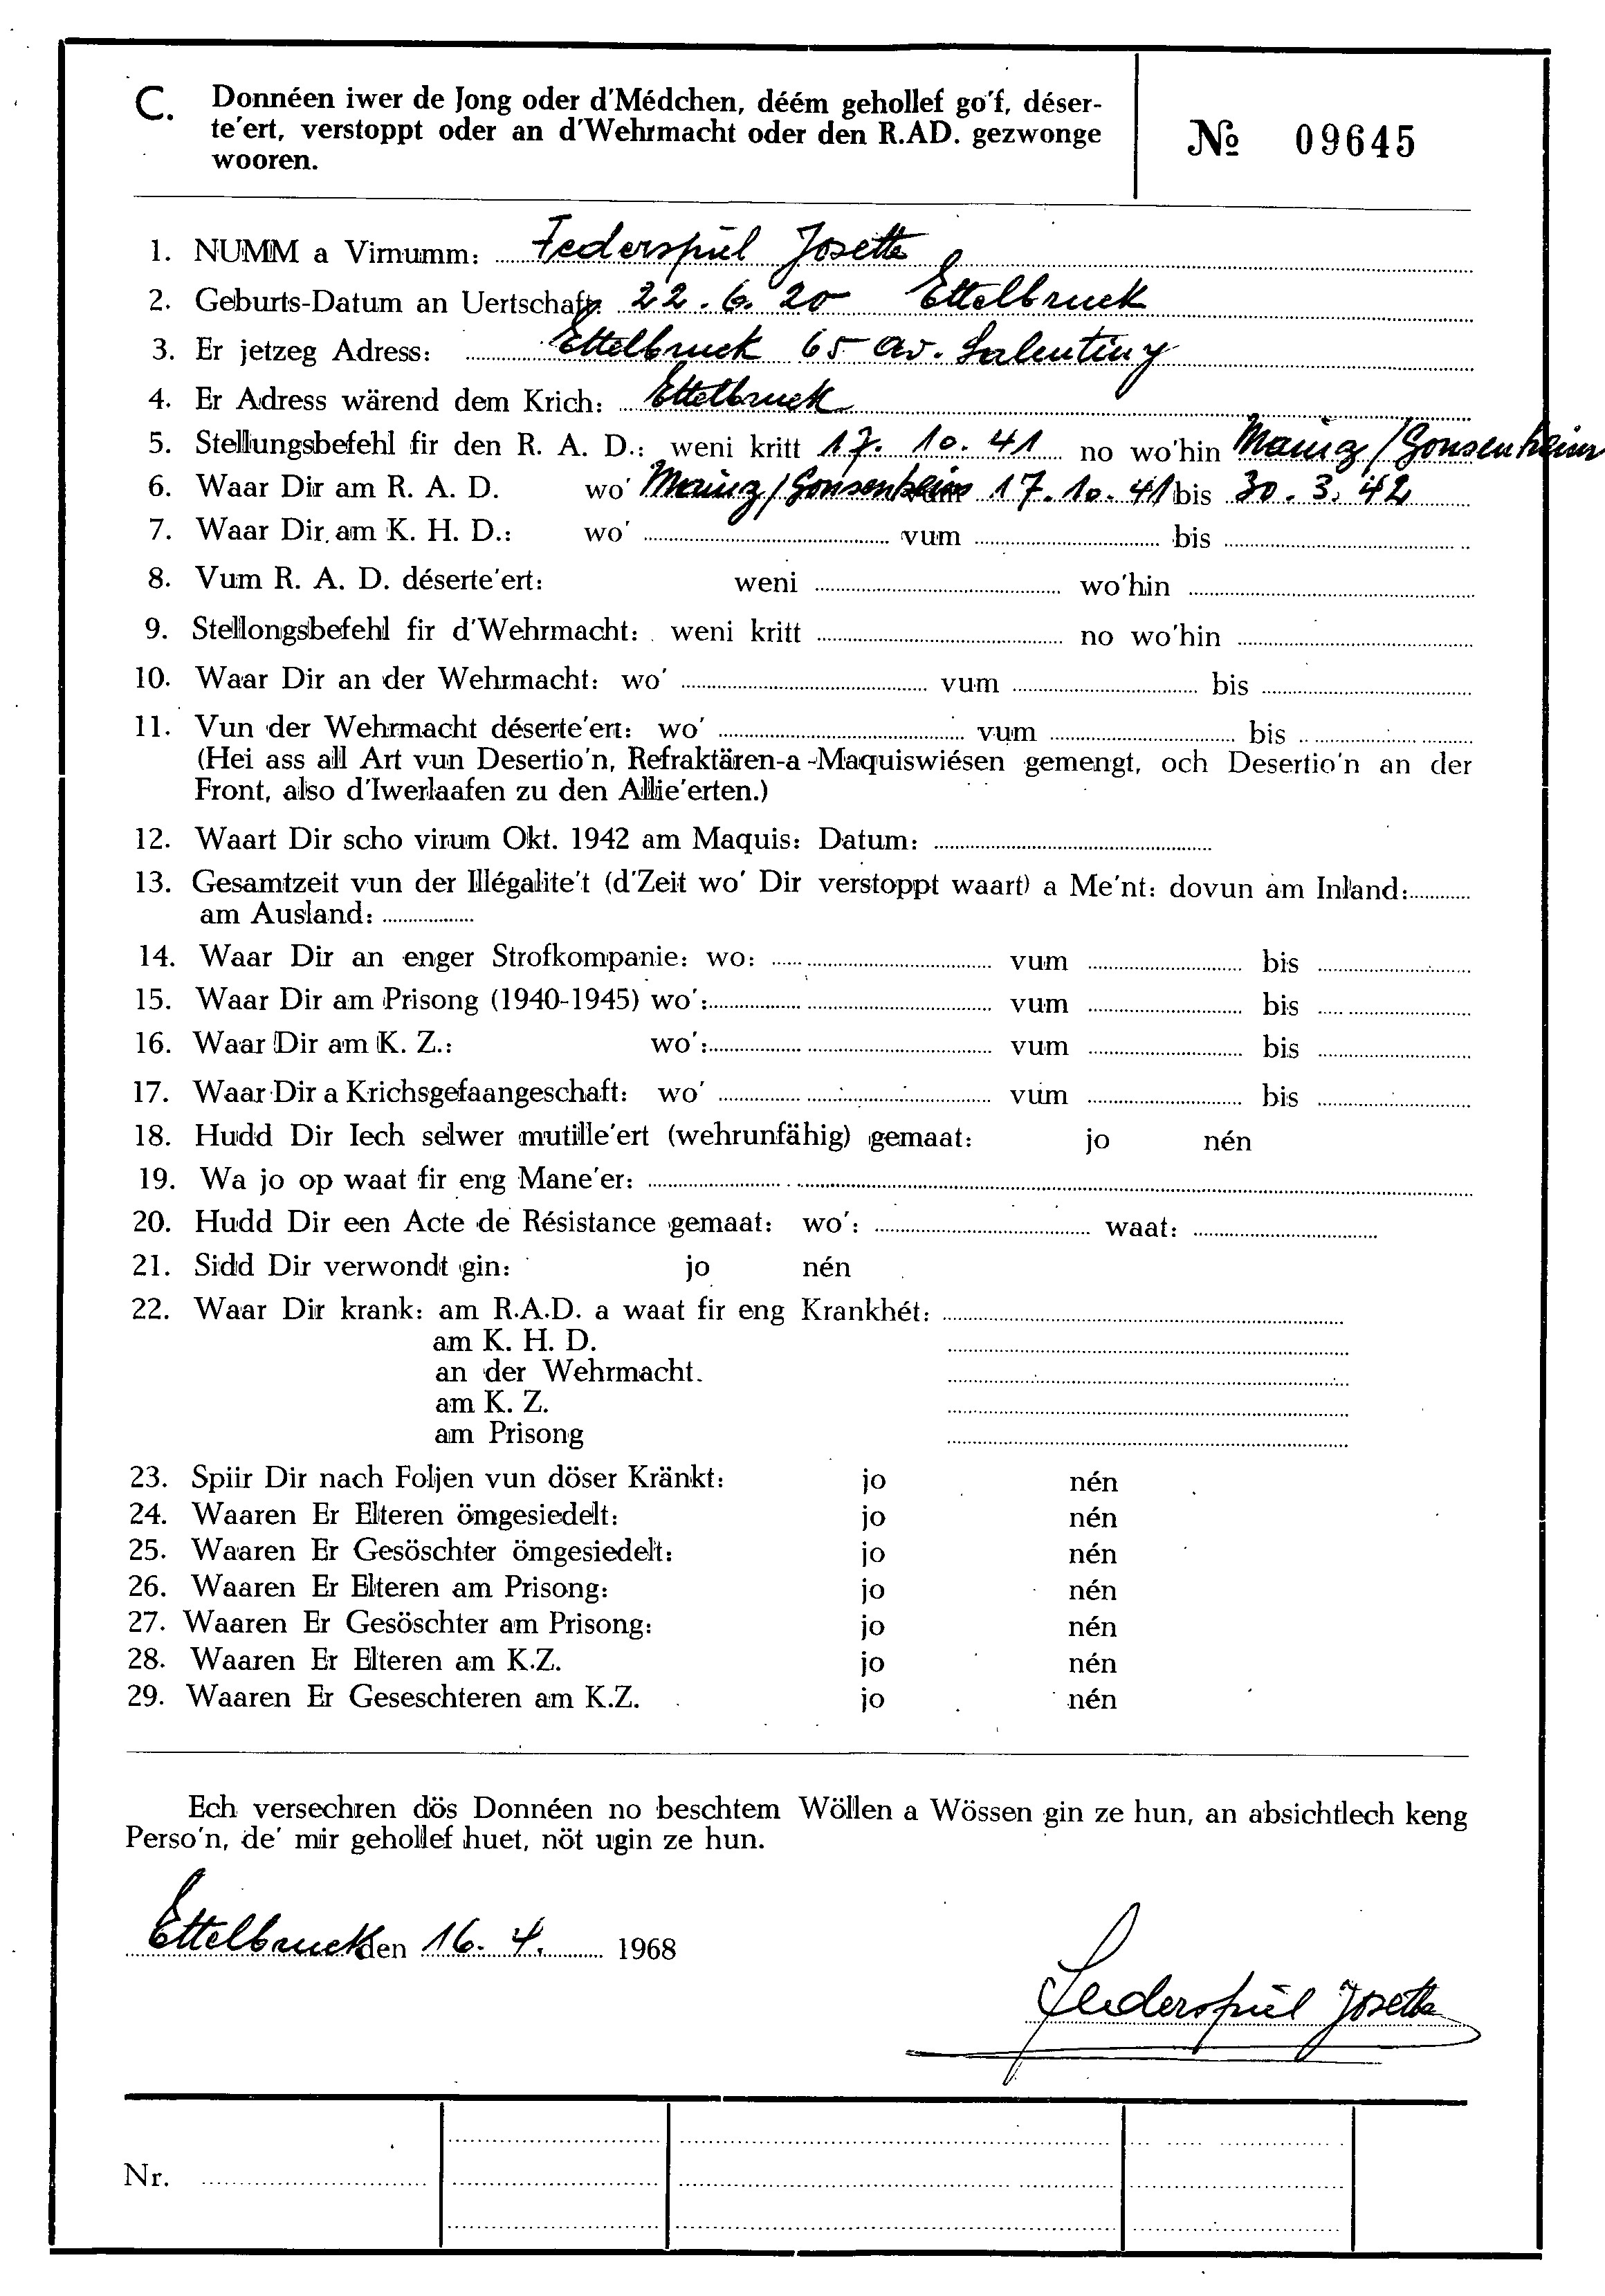 C. Donnéen iwer de Jong oder d'Médchen, déém gehollef go'f, déser-
te'ert, verstoppt oder an d'Wehrmacht oder den R.AD. gezwonge
wooren.
№ 09645
1. NUMM a Virnumm: Federspiel Josette
2. Geburts-Datum an Uertschaft: 22.6.20 Ettelbruck
3. Er jetzeg Adress: Ettelbruck 65 av. Salentiny
4. Er Adress wärend dem Krich: Ettelbruck
5. Stellungsbefehl fir den R. A. D.: weni kritt 17.10.41 no wo'hin Mainz/Gonsenheim
6. Waar Dir am R. A. D. wo' Mainz/Gonsenheim 17.10.41 bis 30.3.42
7. Waar Dir am K. H. D.: wo' vum bis
8. Vum R. A. D. déserte'ert: weni wo'hin
9. Stellongsbefehl fir d'Wehrmacht: weni kritt no wo'hin
10. Waar Dir an der Wehrmacht: wo' vum bis
11. Vun der Wehrmacht déserte'ert: wo' vum bis
(Hei ass all Art vun Desertio'n, Refraktären-a-Maquiswiésen gemengt, och Desertio'n an der
Front, also d'Iwerlaafen zu den Allie'erten.)
12. Waart Dir scho virum Okt. 1942 am Maquis: Datum:
13. Gesamtzeit vun der Illégalite't (d'Zeit wo' Dir verstoppt waart) a Me'nt: dovun am Inland:
am Ausland:
14. Waar Dir an enger Strofkompanie: wo: vum bis
15. Waar Dir am Prisong (1940-1945) wo': vum bis
16. Waar Dir am K. Z.: wo': vum bis
17. Waar Dir a Krichsgefaangeschaft: wo' vum bis
18. Hudd Dir Iech selwer mutille'ert (wehrunfähig) gemaat: jo nén
19. Wa jo op waat fir eng Mane'er:
20. Hudd Dir een Acte de Résistance gemaat: wo': waat:
21. Sidd Dir verwondt gin: jo nén
22. Waar Dir krank: am R.A.D. a waat fir eng Krankhét:
am K. H. D.
an der Wehrmacht.
am K. Z.
am Prisong
23. Spiir Dir nach Foljen vun döser Kränkt: jo nén
24. Waaren Er Elteren ömgesiedelt: jo nén
25. Waaren Er Gesöschter ömgesiedelt: jo nén
26. Waaren Er Elteren am Prisong: jo nén
27. Waaren Er Gesöschter am Prisong: jo nén
28. Waaren Er Elteren am K.Z. jo nén
29. Waaren Er Geseschteren am K.Z. jo nén
Ech versechren dös Donnéen no beschtem Wöllen a Wössen gin ze hun, an absichtlech keng
Perso'n, de' mir gehollef huet, nöt ugin ze hun.
Ettelbruck den 16.4. 1968
Federspiel Josette
Nr.